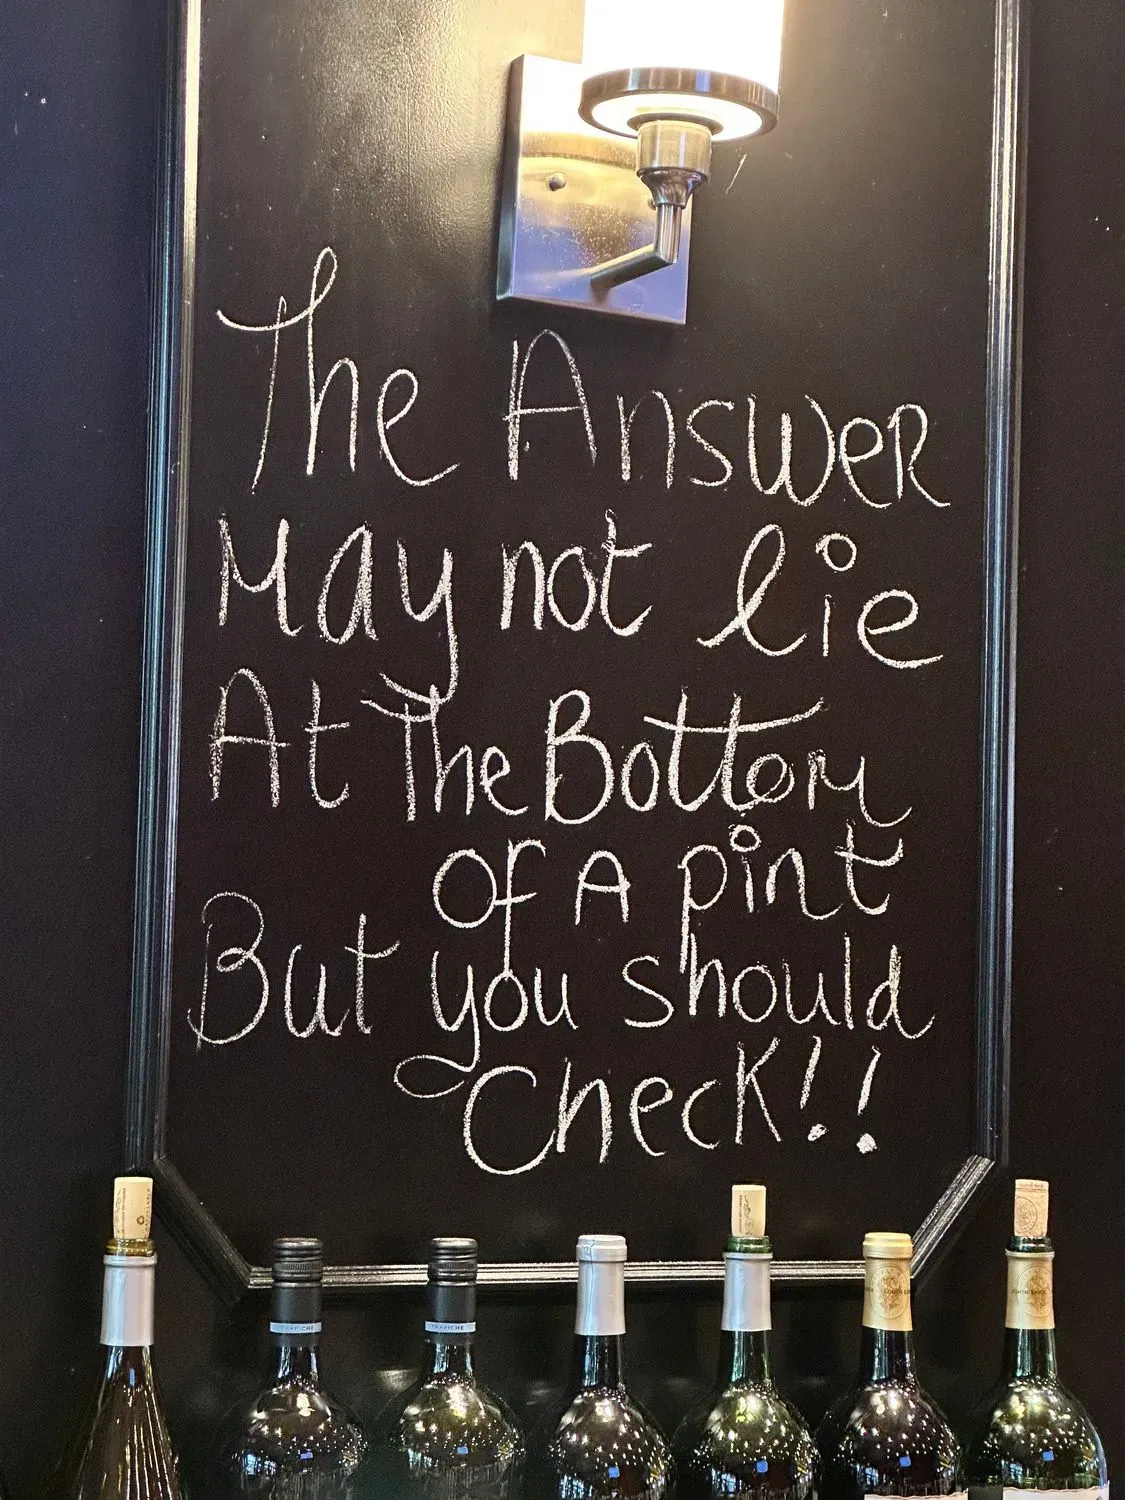 The Answer
May not lie
At The Bottom
of A pint
But you should
Check!!
TRAPICHE
TRAPICHE